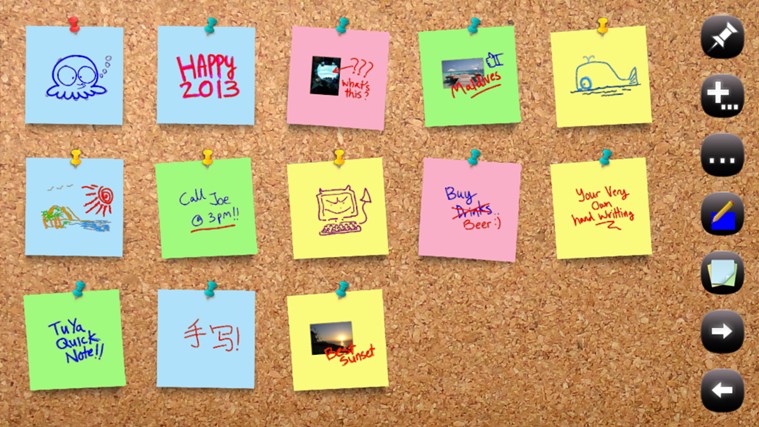 HAPPY
2013
???
what's
this?
Maldives
Call Joe
@ 3pm!!
Buy
Drinks
Beer :)
Your Very
Own
hand writting
TuYa
Quick
Note!!
手写!
Best
Sunset